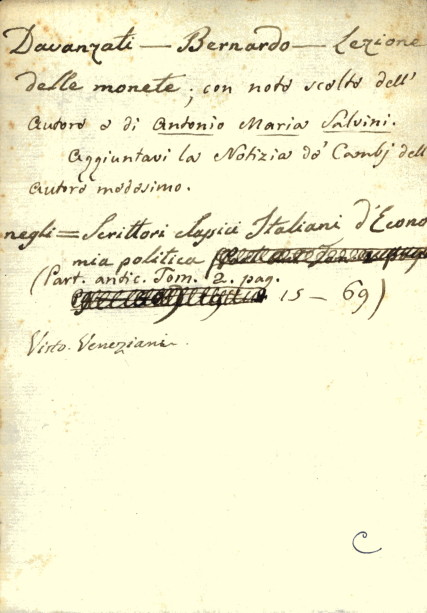 Davanzati — Bernardo — Lezione
delle monete; con note scelte dell'
Autore e di Antonio Maria Salvini.
Aggiuntavi la Notizia de' Cambj dell
Autore medesimo.
negli = Scrittori classici Italiani d'Econo
mia politica
(Part. antic. Tom. 2. pag.
15 — 69)
Visto. Veneziani.
C